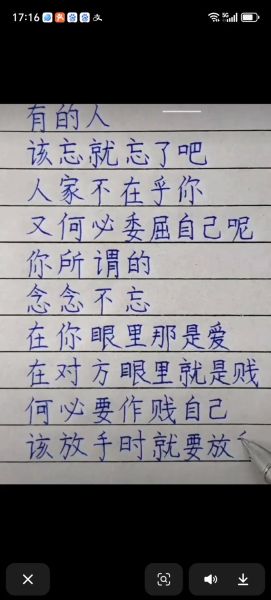 17:16
有的人
该忘就忘了吧
人家不在乎你
又何必委屈自己呢
你所谓的
念念不忘
在你眼里那是爱
在对方眼里就是贱
何必要作贱自己
该放手时就要放